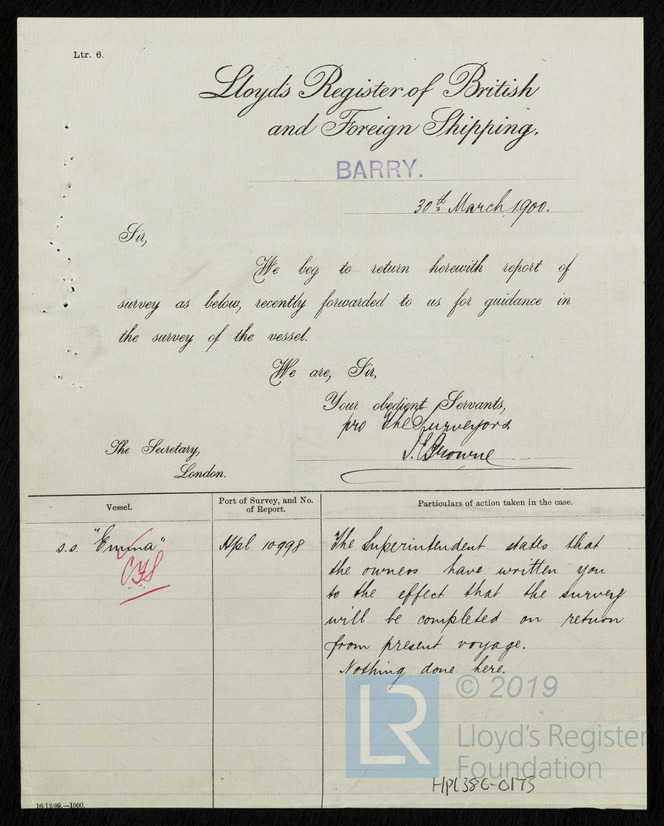 Ltr. 6.
Lloyds Register of British
and Foreign Shipping.
BARRY.
30th March 1900.
Sir,
We beg to return herewith report of
survey as below, recently forwarded to us for guidance in
the survey of the vessel.
We are, Sir,
Your obedient Servants,
pro The Surveyors
Browne
The Secretary,
London.
Vessel.
Port of Survey, and No. of Report.
Particulars of action taken in the case.
s.s. "Emma"
Hpl 10998
The Superintendent states that
the owners have written you
to the effect that the survey
will be completed on return
from present voyage.
Nothing done here.
LR
© 2019
Lloyd's Register
Foundation
HPL386-0173
16/12/99.—1000.